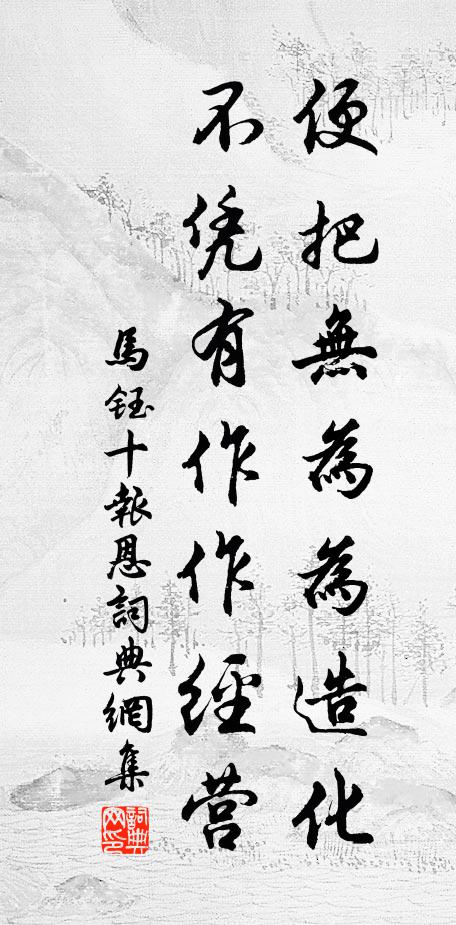 便把無為為造化
不凭有作作經营
馬鈺十報恩詞典網集
詞典
网印